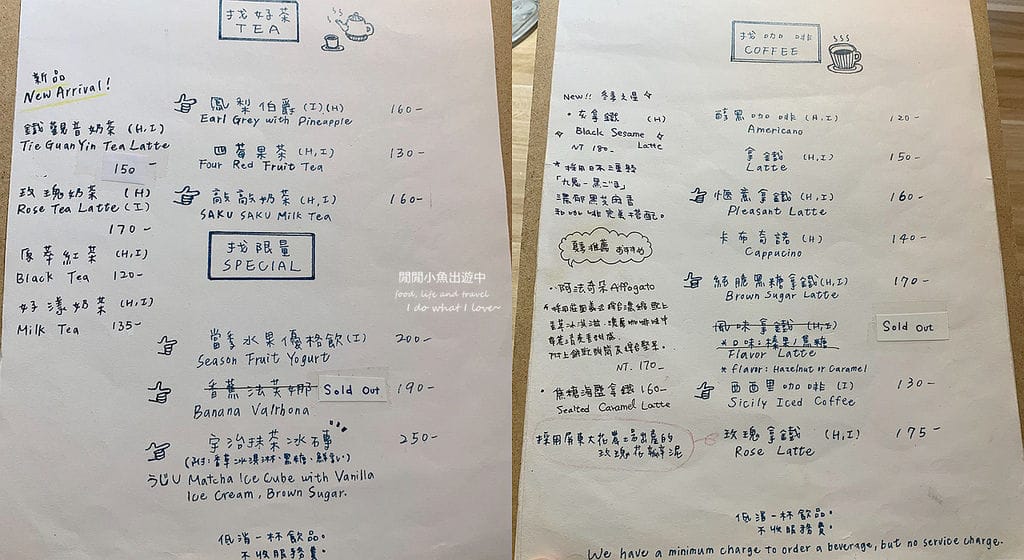 找好茶
TEA
新品
New Arrival!
鐵觀音奶茶 (H,I)
Tie GuanYin Tea Latte
150 -
玫瑰奶茶 (H)
Rose Tea Latte (I)
170 -
紅茶 (H,I)
Black Tea 120-
好漾奶茶 (H,I)
Milk Tea 135-
鳳梨伯爵 (I)(H) 160-
Earl Grey with Pineapple
四莓果茶 (H,I) 130-
Four Red Fruit Tea
敲敲奶茶 (H,I) 160-
SAKU SAKU Milk Tea
找限量
SPECIAL
閒閒小魚出遊中
food, life and travel
I do what I love~
當季水果優格飲(I) 200-
Season Fruit Yogurt
香蕉法芙娜 Sold Out 190-
Banana Valrhona
宇治抹茶冰磚 250-
(附:香草冰淇淋、黑糖、鮮奶)
うじU Matcha Ice Cube with Vanilla
Ice Cream, Brown Sugar.
低消一杯飲品。
不收服務費。
找咖啡
COFFEE
New!!
灰拿鐵 (H)
Black Sesame Latte
NT 180.
採用日本三重縣
「九鬼-黑ごま」
濃郁黑芝麻香
和咖啡完美搭配。
推薦 おすすめ
阿法奇朵 Affogato
NT. 170-
焦糖海鹽拿鐵 160-
Sealted Caramel Latte
採用屏東大花農場出產的
玫瑰花瓣泥
醇黑咖啡 (H,I) 120-
Americano
拿鐵 (H,I) 150-
Latte
愜意拿鐵 (H,I) 160-
Pleasant Latte
卡布奇諾 (H) 140-
Cappucino
酥脆黑糖拿鐵(H,I) 170-
Brown Sugar Latte
風味拿鐵 (H,I) Sold Out
*口味:榛果/焦糖
Flavor Latte
* flavor: Hazelnut or Caramel
西西里咖啡 (I) 130-
Sicily Iced Coffee
玫瑰拿鐵 (H,I) 175-
Rose Latte
低消一杯飲品。
不收服務費。
We have a minimum charge to order a beverage, but no service charge.